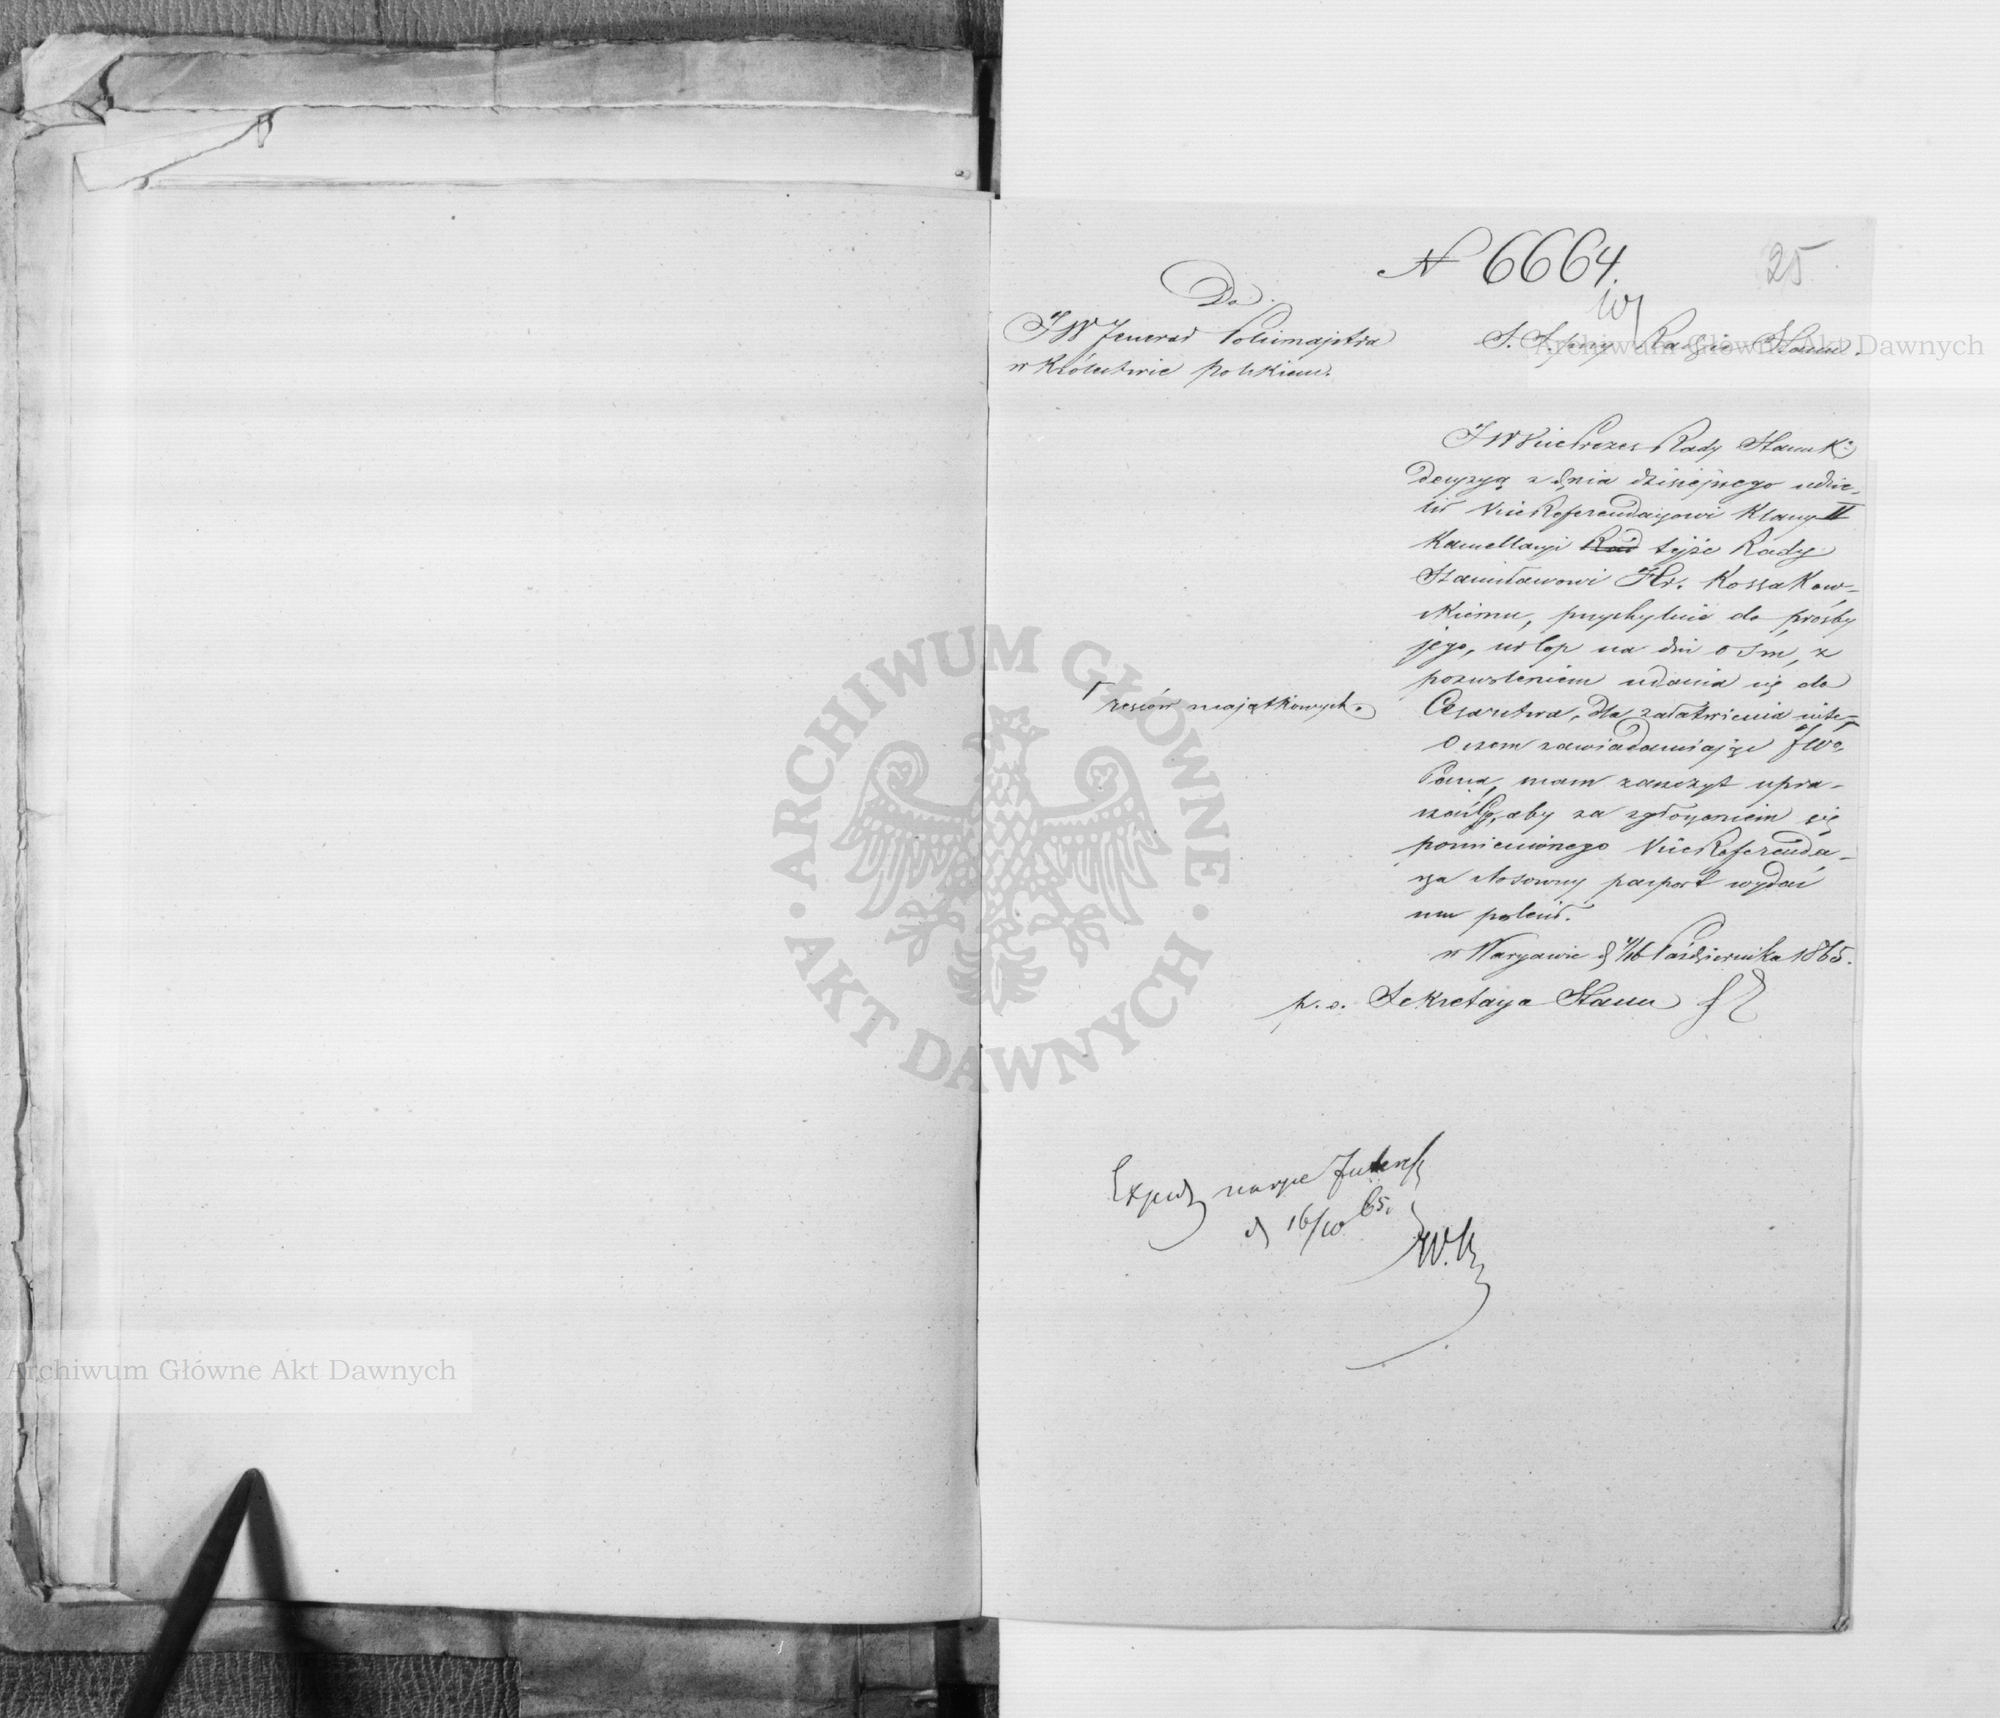 N 6664.
25
Do
JW Jenerał Policmajstra
w Królestwie polskiem.
S. S. przy Radzie Stanu.
JW VicePrezes Rady Stanu K:
decyzyą z dnia dzisiejszego udzie-
lił ViceReferendarzowi Klassy II
Kancellaryi Rad tejże Rady
Stanisławowi Hr. Kossakow-
skiemu, przychylnie do prośby
jego, urlop na dni ośm, z
pozwoleniem udania się do
Cesarstwa, dla załatwienia inte-
resów majątkowych.
O czem zawiadamiając JWo
Pana, mam zaszczyt upra-
szać, aby za zgłoszeniem się
pomienionego ViceReferenda-
rza stosowny paszport wydać
mu polecił.
w Warszawie d 4/16 Października 1865.
p. o. Sekretarza Stanu
d 16/10 65.
ARCHIWUM GŁÓWNE AKT DAWNYCH
Archiwum Główne Akt Dawnych
Archiwum Główne Akt Dawnych